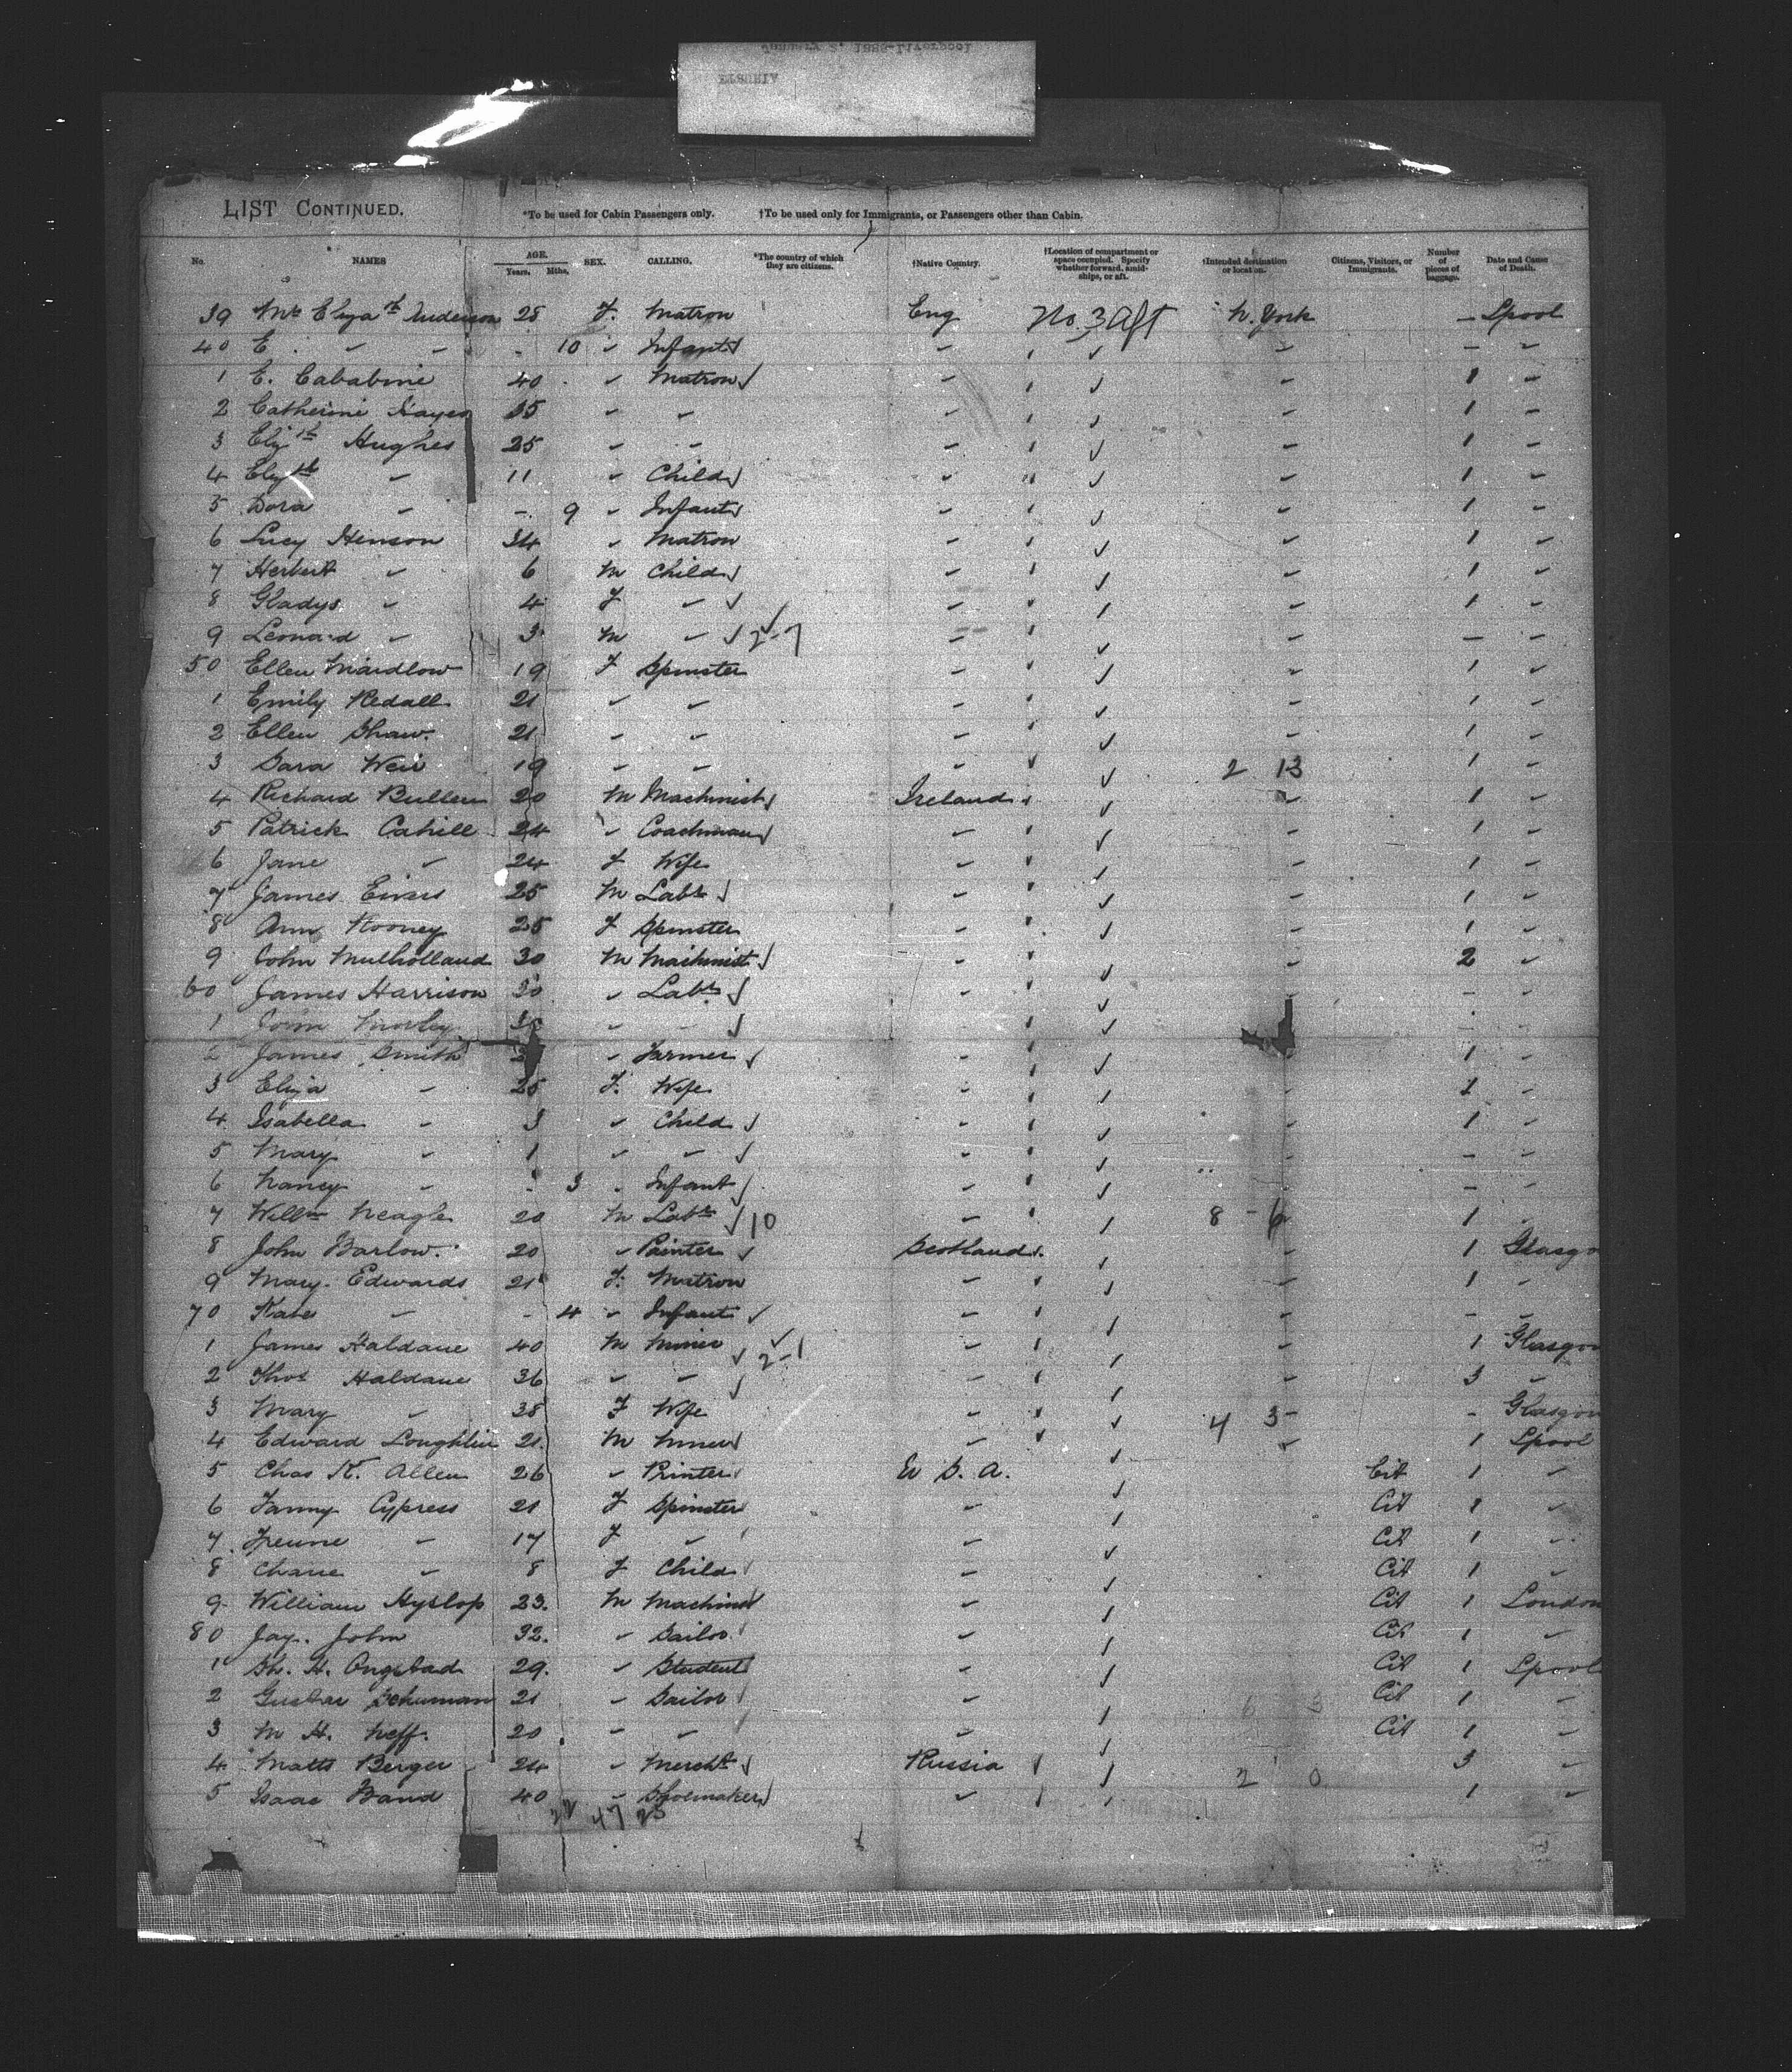 LIST CONTINUED. *To be used for Cabin Passengers only. †To be used only for Immigrants, or Passengers other than Cabin.
No. NAMES AGE. Years. Mths. SEX. CALLING. *The country of which they are citizens. †Native Country. †Location of compartment or space occupied. Specify whether forward, amidships, or aft. †Intended destination or location. Citizens, Visitors, or Immigrants. Number of pieces of baggage. Date and Cause of Death.
39 Mrs Elizath Anderson 28 F. Matron Eng No. 3 Aft N. York – Lpool
40 E. " " - 10 " Infant " " – "
1 E. Cababine 40 " Matron " " 1 "
2 Catherine Hayes 35 " " " " 1 "
3 Elizth Hughes 25 " " " " 1 "
4 Elizth " 11 " Child " " 1 "
5 Dora " - 9 " Infant " " 1 "
6 Lucy Henson 34 " Matron " " 1 "
7 Herbert " 6 M Child " " 1 "
8 Gladys " 4 F " " " 1 "
9 Leonard " 3 M " 2-7 " " – "
50 Ellen Mardlow 19 F Spinster " " 1 "
1 Emily Redall 21 " " " " 1 "
2 Ellen Shaw. 21 " " " " 1 "
3 Sara Weir 19 " " " 2 13 1 "
4 Richard Bullen 20 M Machinist Ireland " 1 "
5 Patrick Cahill 24 " Coachman " " 1 "
6 Jane " 24 F Wife " " 1 "
7 James 25 M Labr " " 1 "
8 Ann Rooney 25 F Spinster " " 1 "
9 John Mulholland 30 M Machinist " " 2 "
60 James Harrison 30 " Labr " " – "
1 John " " " " – "
2 James Smith " Farmer " " 1 "
3 Eliza " 25 F. Wife " " 1 "
4 Isabella " 3 " Child " " 1 "
5 Mary " 1 " " " " – "
6 Nancy " - 3 " Infant " " – "
7 Willm Neagle 20 M Labr 10 " 8 - 6 1 "
8 John Barlow. 20 " Painter Scotland " 1 Glasgo
9 Mary Edwards 21 F. Matron " " 1 "
70 Kate " - 4 " Infant " " – "
1 James Haldane 40 M Miner 2-1 " " 1 Glasgow
2 Thos Haldane 36 " " " " 3 "
3 Mary " 38 F Wife " 4 3 – Glasgow
4 Edward Loughlin 21. M Miner " " 1 Lpool
5 Chas K. Allen 26 " Printer U S. A. Cit 1 "
6 Fanny Cypress 21 F Spinster " Cit 1 "
7 " 17 F " " Cit 1 "
8 " 8 F Child " Cit 1 "
9 William Hyslop 23. M Machinist " Cit 1 London
80 Jay. John 32. " Sailor " Cit 1 "
1 H. 29. " Student " Cit 1 Lpool
2 Gustav Schuman 21 " Sailor " 6 3 Cit 1 "
3 M H. Neff. 20 " " " Cit 1 "
4 Matts Berger 24 " Mercht Russia 3 "
5 Isaac Band 40 " Shoemaker " 2 0 1 "
22 47 25